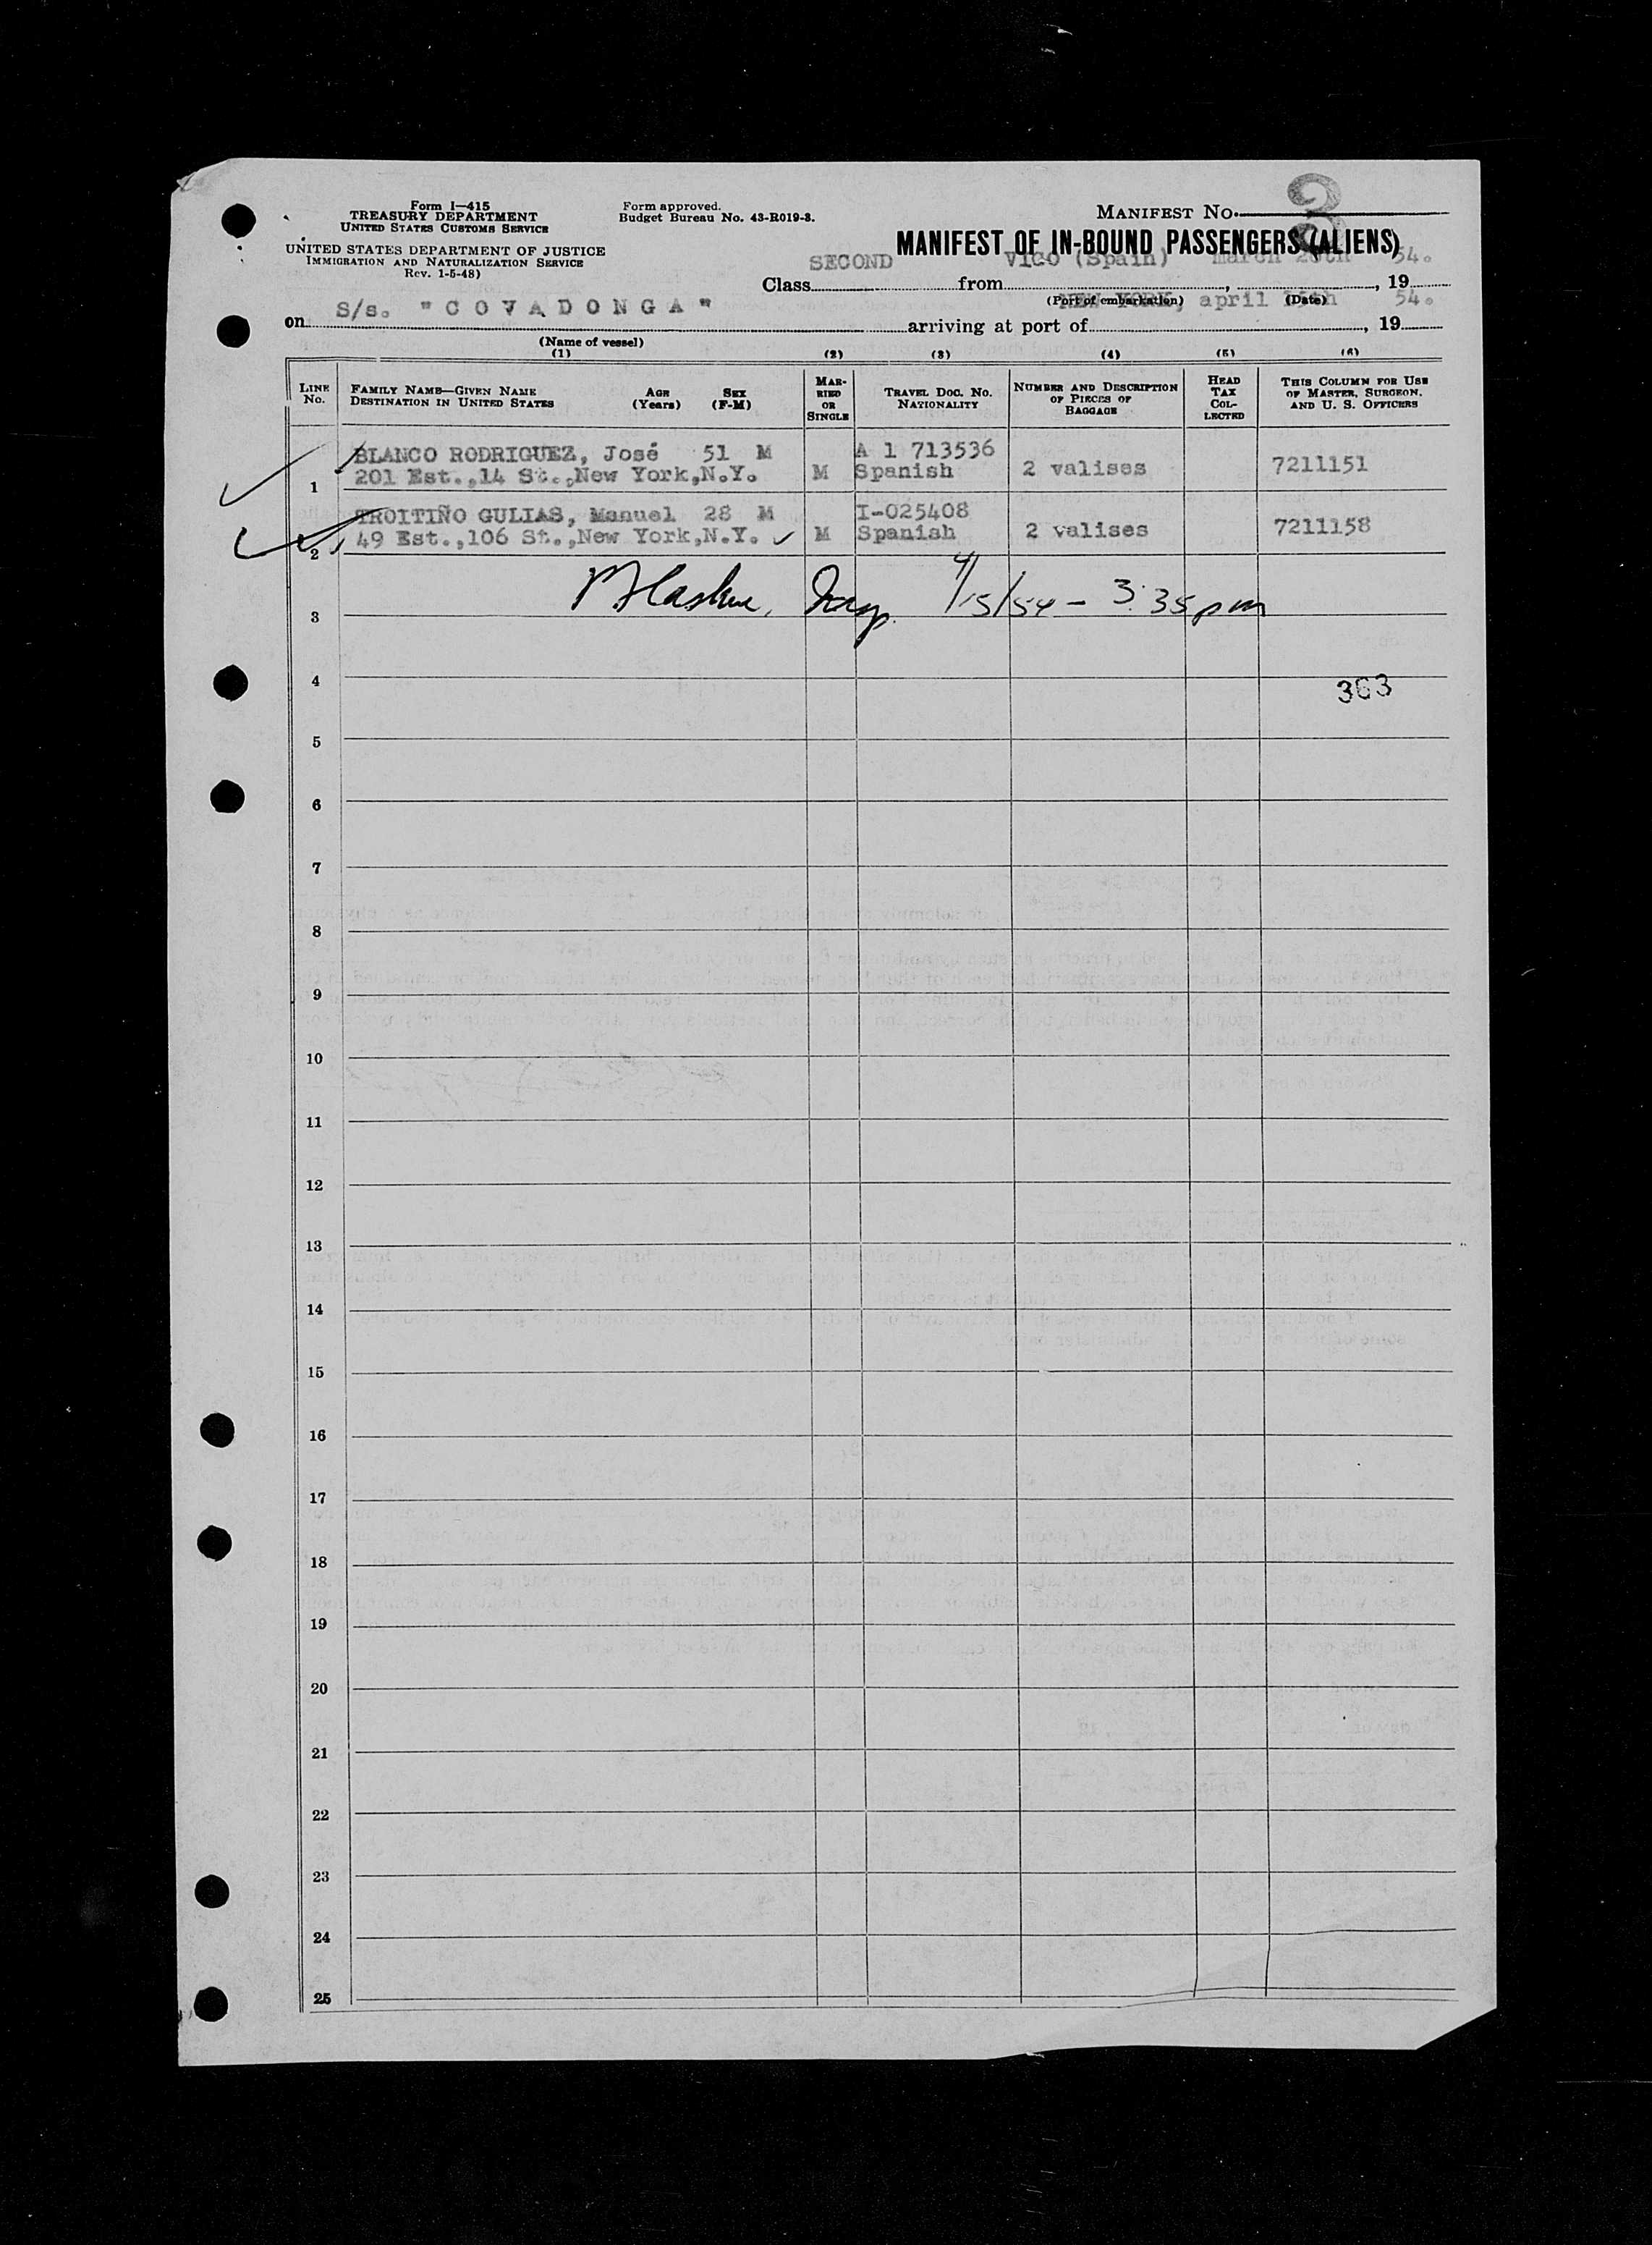 Form I—415
TREASURY DEPARTMENT
UNITED STATES CUSTOMS SERVICE
UNITED STATES DEPARTMENT OF JUSTICE
IMMIGRATION AND NATURALIZATION SERVICE
Rev. 1-5-48)
Form approved.
Budget Bureau No. 43-R019-3.
MANIFEST NO. 3
MANIFEST OF IN-BOUND PASSENGERS (ALIENS)
Class SECOND from VIGO (Spain), march, 19 54.
(Port of embarkation) (Date)
on S/s. "COVADONGA" arriving at port of NEW YORK, april, 19 54.
(Name of vessel)
(1) (2) (3) (4) (5) (6)
LINE No.
FAMILY NAME—GIVEN NAME
DESTINATION IN UNITED STATES
AGE (Years)
SEX (F-M)
MARRIED OR SINGLE
TRAVEL DOC. NO. NATIONALITY
NUMBER AND DESCRIPTION OF PIECES OF BAGGAGE
HEAD TAX COLLECTED
THIS COLUMN FOR USE OF MASTER, SURGEON, AND U. S. OFFICERS
BLANCO RODRIGUEZ, José 51 M A 1 713536
1 201 Est.,14 St.,New York,N.Y. M Spanish 2 valises 7211151
TROITIÑO GULIAS, Manuel 28 M I-025408
2 49 Est.,106 St.,New York,N.Y. M Spanish 2 valises 7211158
3 4/15/54 - 3:35 pm
4 363
5
6
7
8
9
10
11
12
13
14
15
16
17
18
19
20
21
22
23
24
25